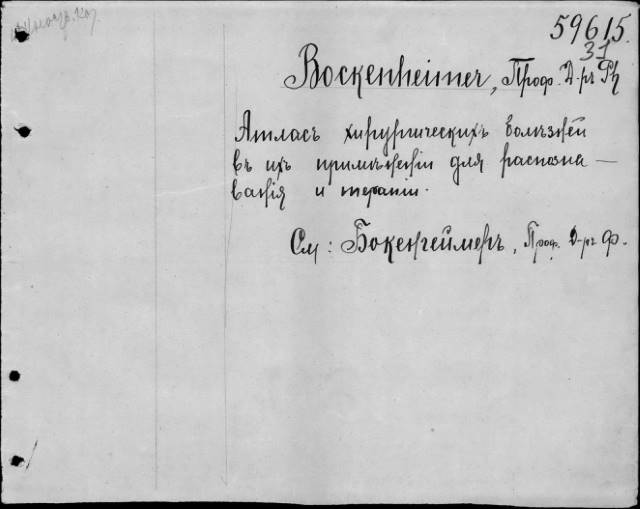 59615.
31
Bockenheimer, Проф. Д-ръ Ph
Атласъ хирургическихъ болѣзней
въ ихъ примѣненіи для распозна —
ванія и терапіи.
См: Бокенгеймеръ, Проф. Д-ръ Ф.